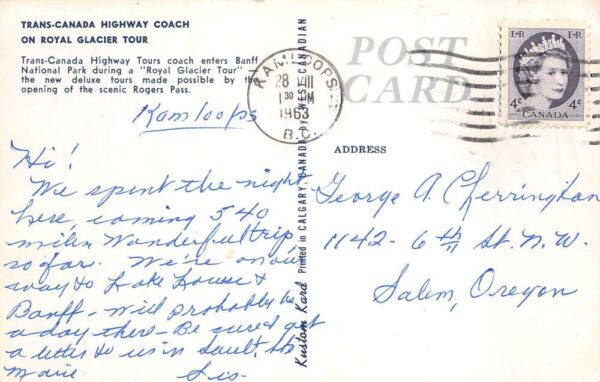 TRANS-CANADA HIGHWAY COACH
ON ROYAL GLACIER TOUR
Trans-Canada Highway Tours coach enters Banff
National Park during a "Royal Glacier Tour"
the new deluxe tours made possible by the
opening of the scenic Rogers Pass.
Kamloops
Hi!
We spent the night
here, coming 540
miles Wonderful trip
so far. We're on our
way to Lake Louse &
Banff - Will probably be
a day there - Be sure & get
a letter to us in Sault, Ste
Marie Sis
Kustom Kard Printed in CALGARY, CANADA by WEST. CANADIAN
POST
CARD
KAMLOOPS
28 VIII
1 30 PM
1963
B.C.
E II R E II R
4¢ 4¢
CANADA
ADDRESS
George A. Cherrington
1142 - 6th St. N.W.
Salem, Oregon